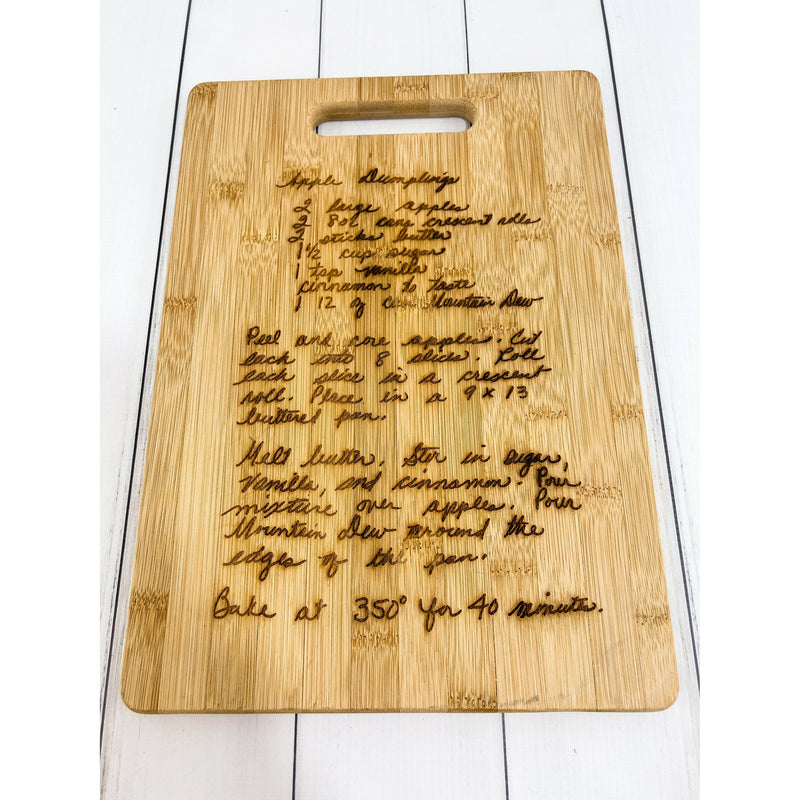 Apple Dumplings
2 large apples
2 8oz cans crescent rolls
2 sticks butter
1 1/2 cup sugar
1 tsp vanilla
cinnamon to taste
1 12 oz can Mountain Dew
Peel and core apples. Cut
each into 8 slices. Roll
each slice in a crescent
roll. Place in a 9 x 13
buttered pan.
Melt butter. Stir in sugar,
vanilla, and cinnamon. Pour
mixture over apples. Pour
Mountain Dew around the
edges of the pan.
Bake at 350° for 40 minutes.